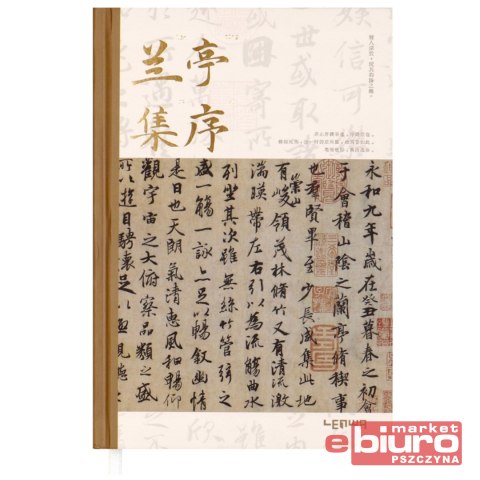 兰亭
集序
永和九年歲在癸丑暮春之初會
于會稽山陰之蘭亭脩禊事
也羣賢畢至少長咸集此地
有崇山峻領茂林脩竹又有清流激
湍暎帶左右引以為流觴曲水
列坐其次雖無絲竹管弦之
盛一觴一詠亦足以暢叙幽情
是日也天朗氣清惠風和暢仰
觀宇宙之大俯察品類之盛
所以遊目騁懷足以極視聽之
market
ebiuro
PSZCZYNA